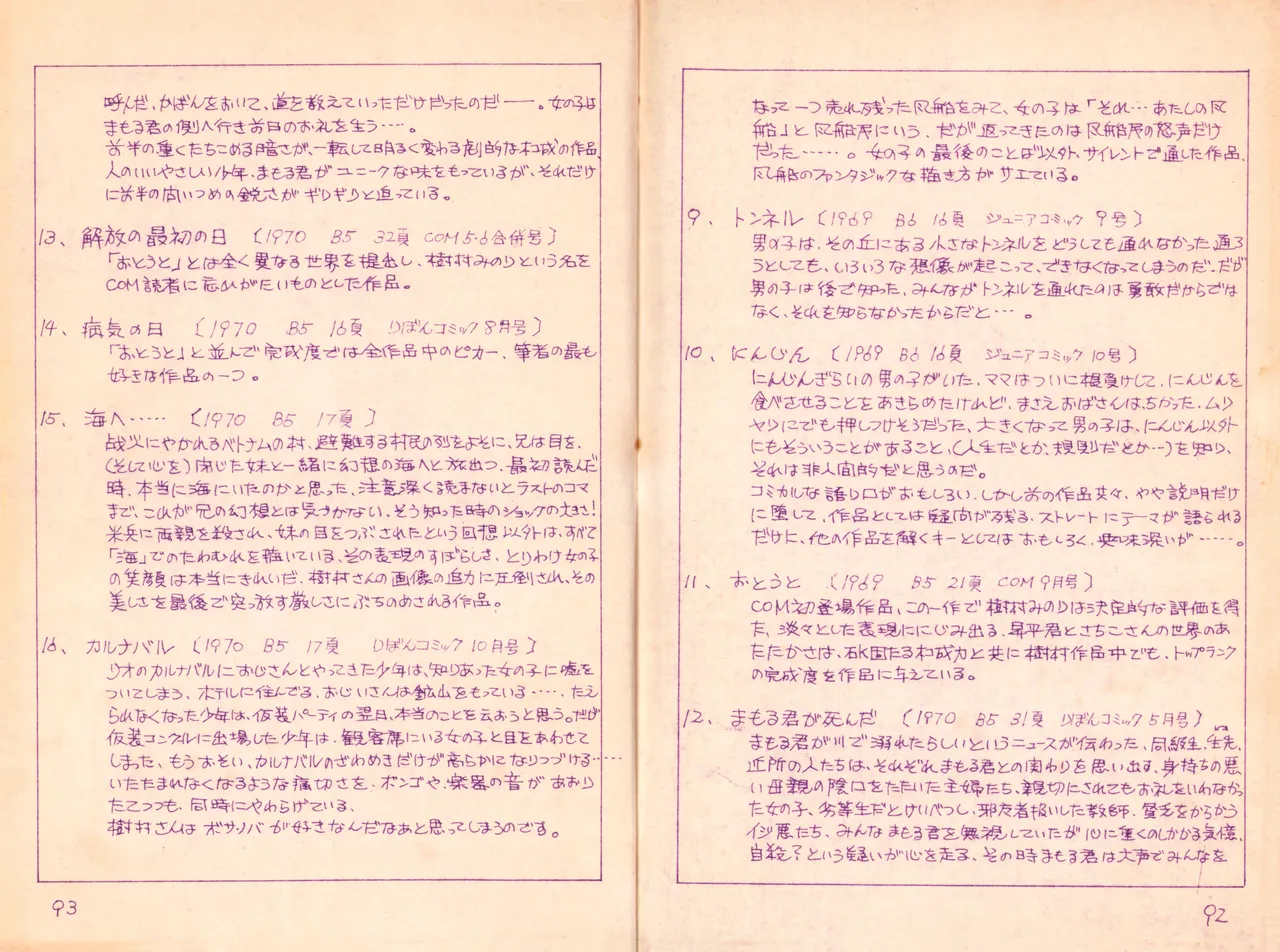 なって一つ売れ残った風船をみて、女の子は「それ…あたしの風
船」と風船屋にいう、だが返ってきたのは風船屋の怒声だけ
だった……。女の子の最後のことば以外、サイレントで通した作品、
風船のファンタジックな描き方がサエている。
9、トンネル (1969 B6 16頁 ジュニアコミック 9号)
男の子は、その丘にある小さなトンネルをどうしても通れなかった、通ろ
うとしても、いろいろな想像が起こって、できなくなってしまうのだ、だが
男の子は後で知った、みんながトンネルを通れたのは勇敢だからでは
なく、それを知らなかったからだと…。
10、にんじん (1969 B6 16頁 ジュニアコミック 10号)
にんじんぎらいの男の子がいた、ママはついに根負けして、にんじんを
食べさせることをあきらめたけれど、まさえおばさんはちがった、ムリ
ヤリにでも押しつけそうだった、大きくなって男の子は、にんじん以外
にもそういうことがあること、(人生だとか、規則だとか…)を知り、
それは非人間的だと思うのだ。
コミカルな語り口がおもしろい、しかし前の作品共々、やや説明だけ
に堕して、作品としては疑問が残る、ストレートにテーマが語られる
だけに、他の作品を解くキーとしてはおもしろく、興味深いが……。
11、おとうと (1969 B5 21頁 COM 9月号)
COM初登場作品、この一作で樹村みのりは決定的な評価を得
た、淡々とした表現ににじみ出る、昇平君とさちこさんの世界のあ
たたかさは、確固たる構成力と共に樹村作品中でも、トップランク
の完成度を作品に与えている。
12、まもる君が死んだ (1970 B5 31頁 りぼんコミック 5月号)
まもる君が川で溺れたらしいというニュースが伝わった、同級生、先生、
近所の人たちは、それぞれまもる君との関わりを思い出す、身持ちの悪
い母親の陰口をたたいた主婦たち、親切にされてもお礼をいわなかっ
た女の子、劣等生だとけいべつし、邪魔者扱いした教師、貧乏をからかう
イジ悪たち、みんなまもる君を無視していたが心に重くのしかかる気憶、
自殺?という疑いが心を走る、その時まもる君は大声でみんなを
92
呼んだ、かばんをおいて、道を教えていっただけだったのだ——。女の子は
まもる君の側へ行き前日のお礼を生う…。
前半の重くたちこめる暗さが、一転して明るく変わる劇的な構成の作品、
人のいいやさしい少年、まもる君がユニークな味をもっているが、それだけ
に前半の問いつめの鋭さがギリギリと迫っている。
13、解放の最初の日 (1970 B5 32頁 COM 5・6合併号)
「おとうと」とは全く異なる世界を提出し、樹村みのりという名を
COM読者に忘れがたいものとした作品。
14、病気の日 (1970 B5 16頁 りぼんコミック 8月号)
「おとうと」と並んで完成度では全作品中のピカ一、筆者の最も
好きな作品の一つ。
15、海へ…… (1970 B5 17頁)
战火にやかれるベトナムの村、避難する村民の列をよそに、兄は目を、
(そして心を)閉じた妹と一緒に幻想の海へと旅出つ、最初読んだ
時、本当に海にいたのかと思った、注意深く読まないとラストのコマ
まで、これが兄の幻想とは気づかない、そう知った時のショックの大きさ!
米兵に両親を殺され、妹の目をつぶされたという回想以外は、すべて
「海」でのたわむれを描いている、その表現のすばらしさ、とりわけ女の子
の笑顔は本当にきれいだ、樹村さんの画像の迫力に圧倒され、その
美しさを最後で突っ放す厳しさにぶちのめされる作品。
16、カルナバル (1970 B5 17頁 りぼんコミック 10月号)
リオのカルナバルにおじさんとやってきた少年は、知りあった女の子に嘘を
ついてしまう、ホテルに住んでる、おじいさんは鉱山をもっている……、たえ
られなくなった少年は、仮装パーティの翌日、本当のことを云おうと思う。だが
仮装コンクルに出場した少年は、観客席にいる女の子と目をあわせて
しまった、もうおそい、カルナバルのざわめきだけが高らかになりつづける……
いたたまれなくなるような痛切さを、ボンゴや、楽器の音があおり
たてつつも、同時にやわらげている、
樹村さんはボサノバが好きなんだなあと思ってしまうのです。
93